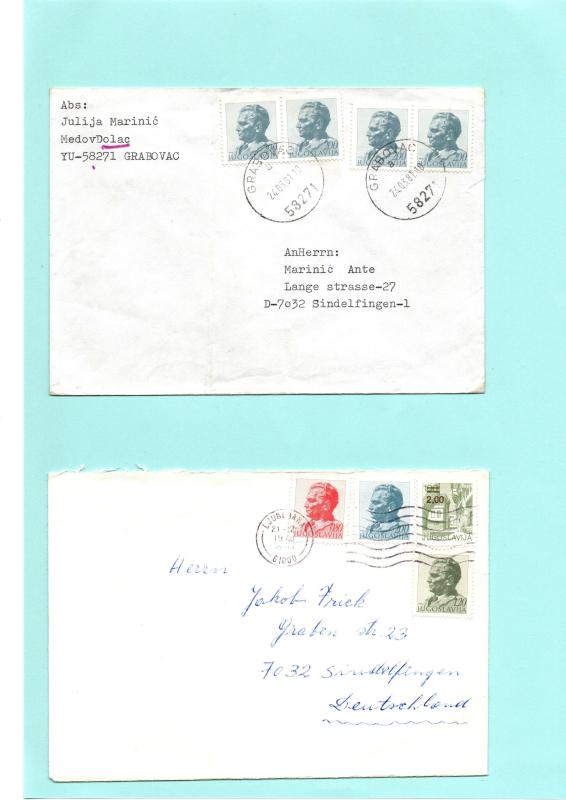 Abs:
Julija Marinić
MedovDolac
YU-58271 GRABOVAC
2,00
JUGOSLAVIJA
2,00
JUGOSLAVIJA
2,00
JUGOSLAVIJA
2,00
JUGOSLAVIJA
GRABOVAC
24.03.81.10
58271
GRABOVAC
24.03.81.10
58271
AnHerrn:
Marinić Ante
Lange strasse-27
D-7032 Sindelfingen-1
JUGOSLAVIJA
JUGOSLAVIJA
2,00
JUGOSLAVIJA
1,20
JUGOSLAVIJA
LJUBLJANA
61000
Herrn
Jakob Frick
Graben str. 23
7032 Sindelfingen
Deutschland